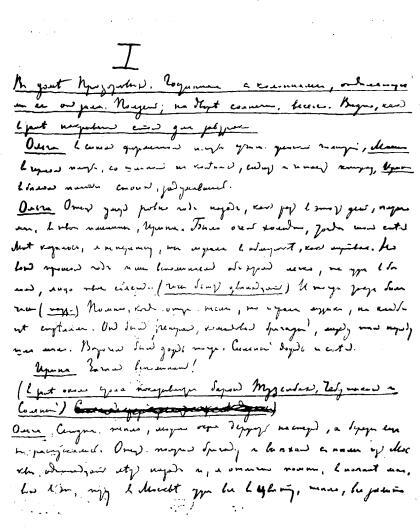 I
В доме Прозоровых. Гостиная с колоннами,
Полдень; на дворе солнечно, весело.
накрывают стол для завтрака
Ольга в синем форменном платье женской гимназии, Маша
в черном платье, со шляпкой на коленях, сидит и читает книжку, Ирина
в белом платье стоит, задумавшись.
Ольга Отец умер ровно год назад, как раз в этот день, пятого
мая, в твои именины, Ирина. Было очень холодно, тогда шел снег.
Мне казалось, я не переживу, ты лежала в обмороке, как мертвая. Но
вот прошел год и мы вспоминаем об этом легко, ты уже в бе
лом, лицо твое сияет. (Часы бьют двенадцать) И тогда также били
часы (пауза) Помню, когда отца несли, то играла музыка, на кладби
ще стреляли. Он был генерал, командовал бригадой, между тем народу
шло мало. Впрочем был дождь тогда. Сильный дождь и снег.
Ирина Зачем вспоминать!
(В зале около стола показываются барон Тузенбах, Чебутыкин и
Соленый)
Ольга Сегодня тепло, можно окна держать настежь, а березы еще
не распускались. Отец получил бригаду и выехал с нами из Мос
квы одиннадцать лет назад и, я отлично помню, в начале мая,
вот в эту пору в Москве уже все в цвету, тепло, все залито